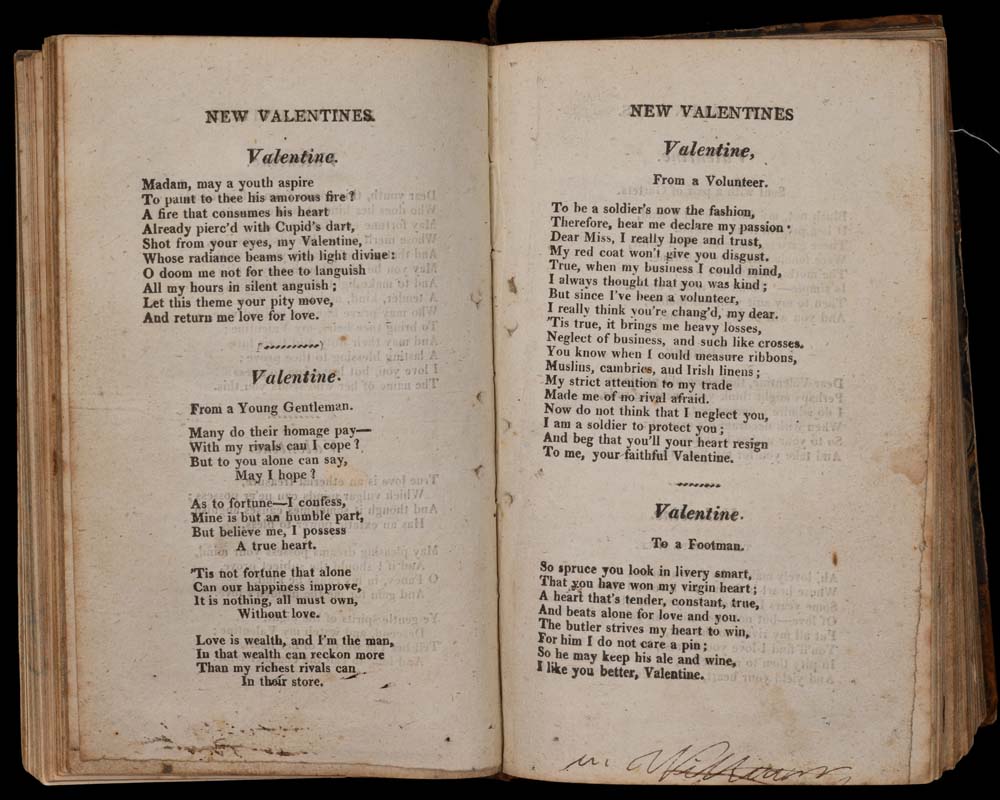 NEW VALENTINES.
Valentine.
Madam, may a youth aspire
To paint to thee his amorous fire?
A fire that consumes his heart
Already pierc'd with Cupid's dart,
Shot from your eyes, my Valentine,
Whose radiance beams with light divine:
O doom me not for thee to languish
All my hours in silent anguish;
Let this theme your pity move,
And return me love for love.
Valentine.
From a Young Gentleman.
Many do their homage pay—
With my rivals can I cope?
But to you alone can say,
May I hope?
As to fortune—I confess,
Mine is but an humble part,
But believe me, I possess
A true heart.
'Tis not fortune that alone
Can our happiness improve,
It is nothing, all must own,
Without love.
Love is wealth, and I'm the man,
In that wealth can reckon more
Than my richest rivals can
In their store.
NEW VALENTINES
Valentine,
From a Volunteer.
To be a soldier's now the fashion,
Therefore, hear me declare my passion
Dear Miss, I really hope and trust,
My red coat won't give you disgust.
True, when my business I could mind,
I always thought that you was kind;
But since I've been a volunteer,
I really think you're chang'd, my dear.
'Tis true, it brings me heavy losses,
Neglect of business, and such like crosses.
You know when I could measure ribbons,
Muslins, cambrics, and Irish linens;
My strict attention to my trade
Made me of no rival afraid.
Now do not think that I neglect you,
I am a soldier to protect you;
And beg that you'll your heart resign
To me, your faithful Valentine.
Valentine.
To a Footman.
So spruce you look in livery smart,
That you have won my virgin heart;
A heart that's tender, constant, true,
And beats alone for love and you.
The butler strives my heart to win,
For him I do not care a pin;
So he may keep his ale and wine,
I like you better, Valentine.